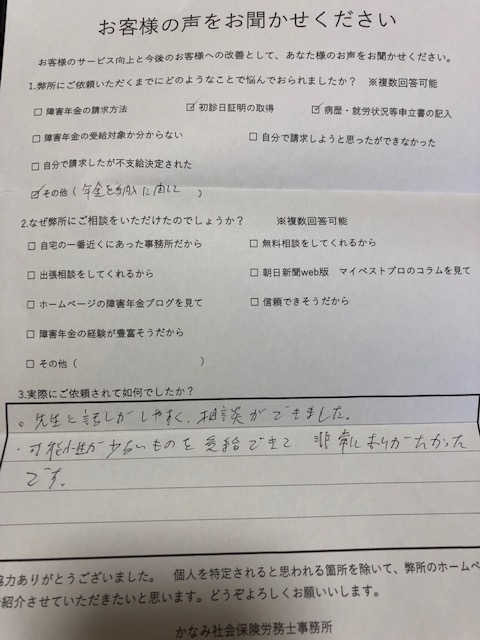 お客様の声をお聞かせください
お客様のサービス向上と今後のお客様への改善として、あなた様のお声をお聞かせください。
1.弊所にご依頼いただくまでにどのようなことで悩んでおられましたか？　※複数回答可能
□ 障害年金の請求方法　☑ 初診日証明の取得　☑ 病歴・就労状況等申立書の記入
□ 障害年金の受給対象か分からない　□ 自分で請求しようと思ったができなかった
□ 自分で請求したが不支給決定された
☑ その他（年金と納入に関して）
2.なぜ弊所にご相談をいただけたのでしょうか？　※複数回答可能
□ 自宅の一番近くにあった事務所だから　□ 無料相談をしてくれるから
□ 出張相談をしてくれるから　□ 朝日新聞web版　マイベストプロのコラムを見て
□ ホームページの障害年金ブログを見て　□ 信頼できそうだから
□ 障害年金の経験が豊富そうだから
□ その他（　）
3.実際にご依頼されて如何でしたか？
。先生と話しがしやすく、相談ができました。
・可能性が少ないものを受給できて、非常にありがたかった
です。
協力ありがとうございました。　個人を特定されると思われる箇所を除いて、弊所のホームペ
紹介させていただきたいと思います。どうぞよろしくお願いいします。
かなみ社会保険労務士事務所